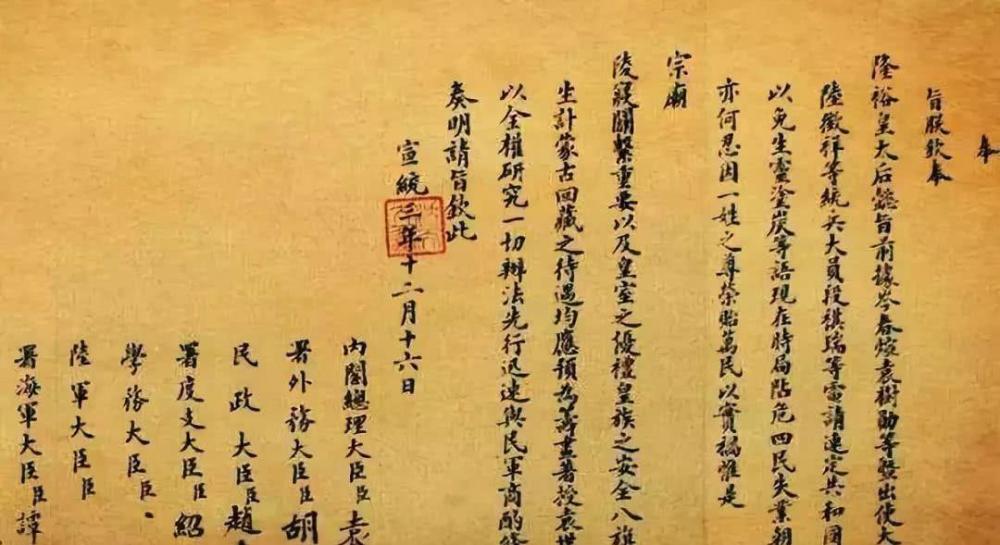 奉
旨朕欽奉
隆裕皇太后懿旨前據岑春煊袁樹勛等暨出使大
陸徵祥等統兵大員段祺瑞等電請速定共和國
以免生靈塗炭等語現在時局阽危四民失業朝
亦何忍因一姓之尊榮貽萬民以實禍惟是
宗廟
陵寢關繫重要以及皇室之優禮皇族之安全八旗
生計蒙古回藏之待遇均應預為籌畫著授袁世
以全權研究一切辦法先行迅速與民軍商酌條
奏明請旨欽此
宣統三年十二月十六日
內閣總理大臣臣袁
署外務大臣臣胡
民政大臣臣趙
署度支大臣臣紹
學務大臣臣
陸軍大臣臣
署海軍大臣臣譚